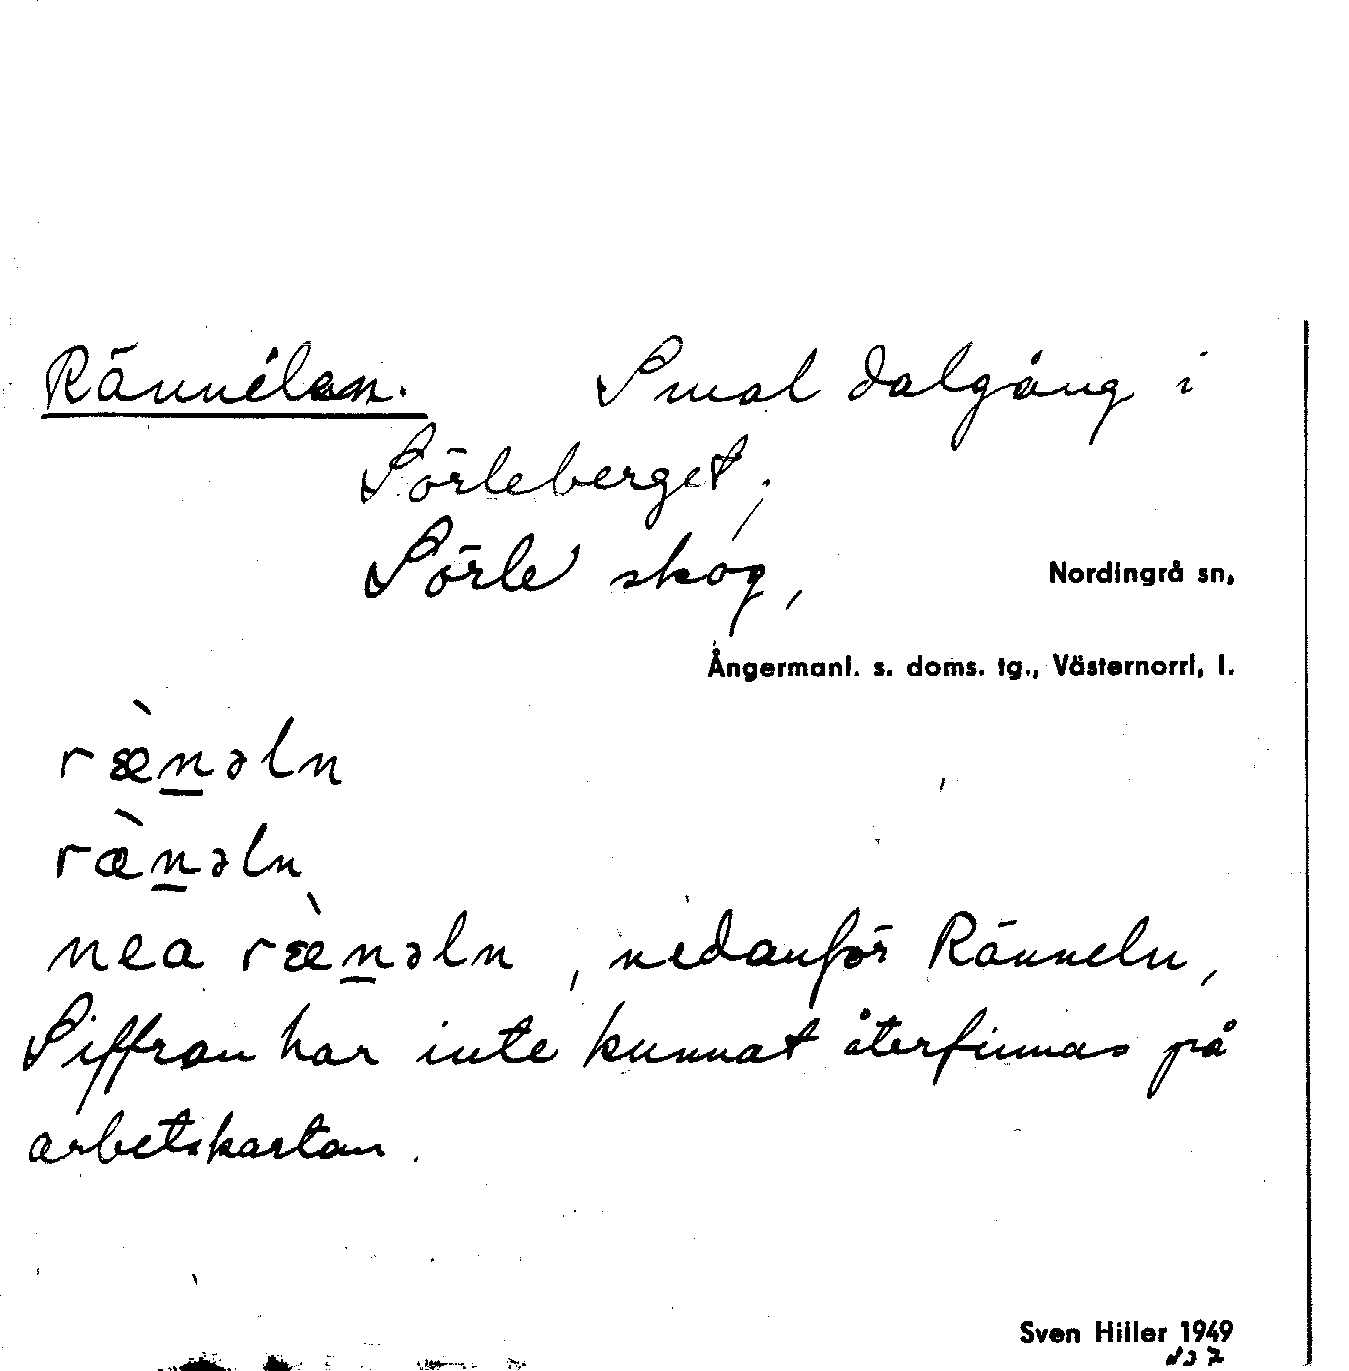 Rännelen. Smal dalgång i
Sörleberget;
Sörle skog,
Nordingrå sn,
Ångermanl. s. doms. tg., Västernorrl, l.
ræ̀n̲əln
ræ̀n̲əln
nea ræ̀n̲əln, nedanför Ränneln,
Siffran har inte kunnat återfinnas på
arbetskartan.
Sven Hiller 1949